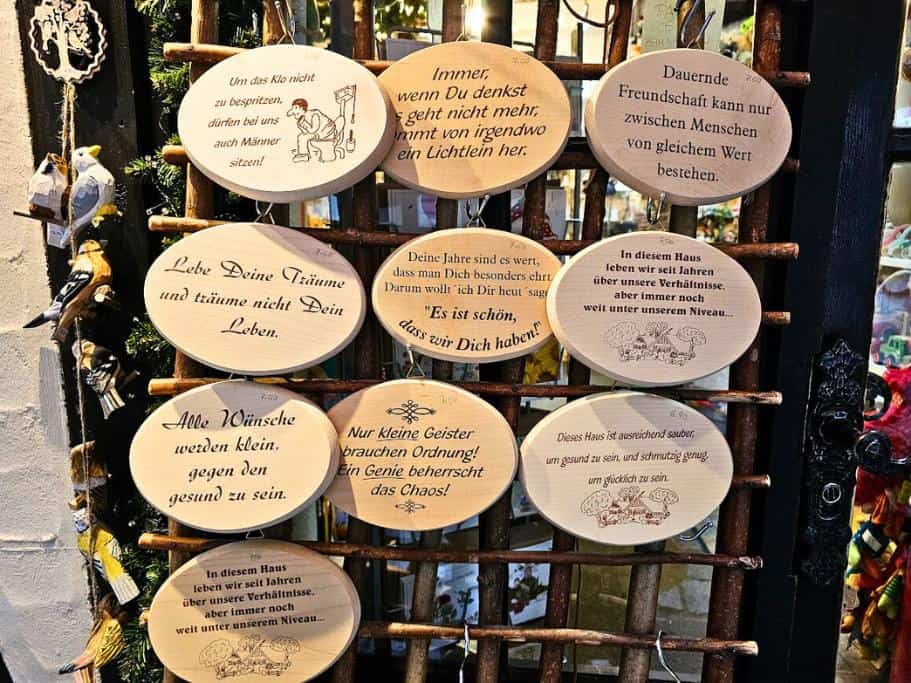 Um das Klo nicht
zu bespritzen,
dürfen bei uns
auch Männer
sitzen!
Immer,
wenn Du denkst
s geht nicht mehr,
ommt von irgendwo
ein Lichtlein her.
Dauernde
Freundschaft kann nur
zwischen Menschen
von gleichem Wert
bestehen.
Lebe Deine Träume
und träume nicht Dein
Leben.
Deine Jahre sind es wert,
dass man Dich besonders ehrt
Darum wollt ´ich Dir heut ´sage
"Es ist schön,
dass wir Dich haben!"
In diesem Haus
leben wir seit Jahren
über unsere Verhältnisse,
aber immer noch
weit unter unserem Niveau...
Alle Wünsche
werden klein,
gegen den
gesund zu sein.
Nur kleine Geister
brauchen Ordnung!
Ein Genie beherrscht
das Chaos!
Dieses Haus ist ausreichend sauber,
um gesund zu sein, und schmutzig genug,
um glücklich zu sein.
In diesem Haus
leben wir seit Jahren
über unsere Verhältnisse,
aber immer noch
weit unter unserem Niveau...